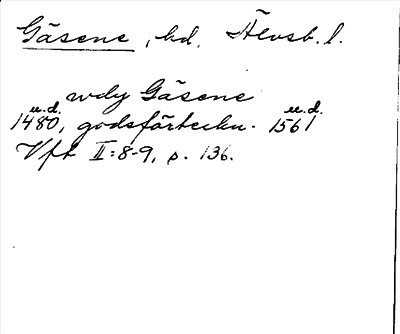 Gäsene, hd. Älvsb. l.
wdy Gäsene
u.d. u.d.
1480, godsförteckn. 1561
Vft II:8-9, p. 136.